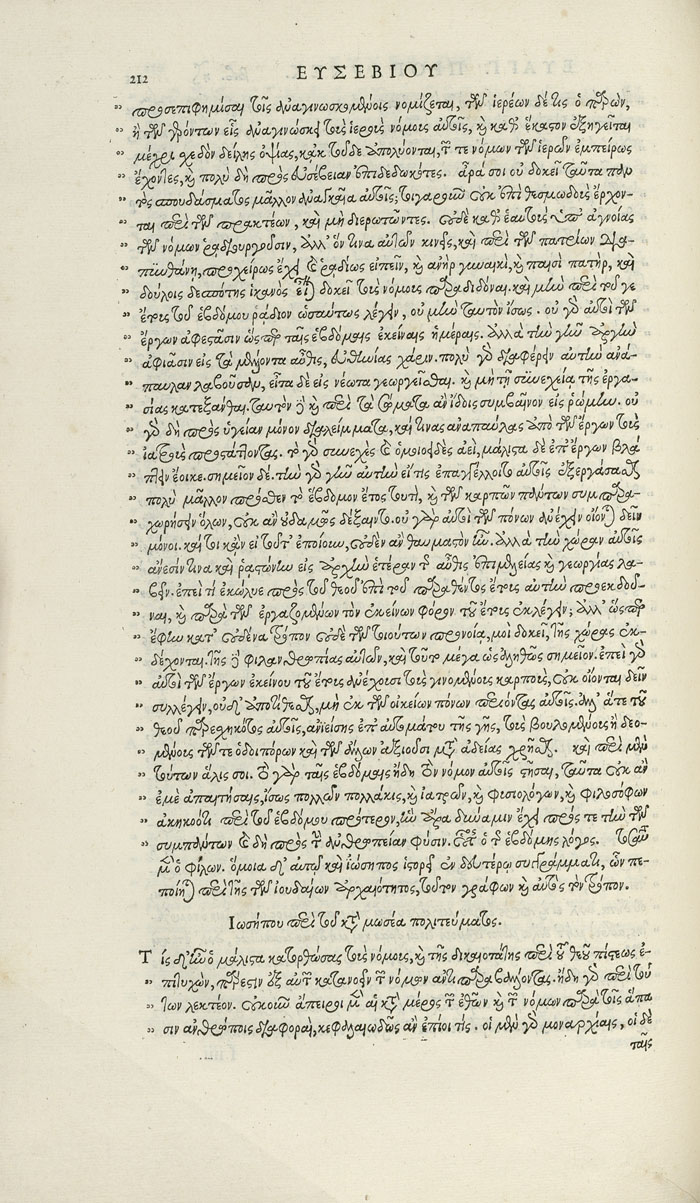 212 ΕΥΣΕΒΙΟΥ
προσεπιφημίσαι τοῖς ἀναγινωσκομένοις νομίζεται, τῶν ἱερέων δέ τις ὁ παρὼν,
ἢ τῶν γερόντων εἷς ἀναγινώσκει τοὺς ἱεροὺς νόμους αὐτοῖς, καὶ καθ' ἕκαστον ἐξηγεῖται
μέχρι σχεδὸν δείλης ὀψίας, κἀκ τοῦδε ἀπολύονται, τῶν τε νόμων τῶν ἱερῶν ἐμπείρως
ἔχοντες, καὶ πολὺ δὴ πρὸς εὐσέβειαν ἐπιδεδωκότες. ἆρά σοι οὐ δοκεῖ ταῦτα παν
τὸς σπουδάσματος μᾶλλον ἀναγκαῖα αὐτοῖς; τοιγαροῦν οὐκ ἐπὶ θεσμῳδοὺς ἔρχον-
ται περὶ τῶν πρακτέων, καὶ μὴ διερωτῶντες. οὐδὲ καθ' ἑαυτοὺς ὑπ' ἀγνοίας
τῶν νόμων ῥᾳδιουργοῦσιν, ἀλλ' ὅν τινα αὐτῶν κινεῖς, καὶ περὶ τῶν πατρίων δια-
πυνθάνῃ, προχείρως ἔχει καὶ ῥᾳδίως εἰπεῖν, καὶ ἀνὴρ γυναικὶ, καὶ παισὶ πατὴρ, καὶ
δούλοις δεσπότης ἱκανὸς εἶναι δοκεῖ τοὺς νόμους παραδιδόναι. καὶ μὴν περὶ τοῦ γε
ἔτους τοῦ ἑβδόμου ῥᾴδιον ὡσαύτως λέγειν, οὐ μὴν ταυτὸν ἴσως. οὐ γὰρ αὐτοὶ τῶν
ἔργων ἀφεστᾶσιν ὥσπερ ταῖς ἑβδόμαις ἐκείναις ἡμέραις. ἀλλὰ τὴν γῆν ἀργὴν
ἀφιᾶσιν εἰς τὰ μέλλοντα αὖθις, εὐθηνίας χάριν. πολὺ γὰρ διαφέρειν αὐτὴν ἀνά-
παυλαν λαβοῦσαν, εἶτα δὲ εἰς νέωτα γεωργεῖσθαι. καὶ μὴ τῇ συνεχείᾳ τῆς ἐργα-
σίας κατεξάνθαι. ταυτὸν δὲ καὶ περὶ τὰ σώματα ἂν ἴδοις συμβαῖνον εἰς ῥώμην. οὐ
γὰρ δὴ πρὸς ὑγείαν μόνον διαλείμματα, καί τινας ἀναπαύλας ἀπὸ τῶν ἔργων τοὺς
ἰατροὺς προστάττοντας. τὸ γὰρ συνεχὲς καὶ ὁμοειδὲς ἀεὶ, μάλιστα δὲ ἐπ' ἔργων βλά
πτειν ἔοικε. σημεῖον δέ. τὴν γὰρ γῆν αὐτὴν εἴ τις ἐπαγγέλλοιτο αὐτοῖς ἐξεργάσασθαι
πολὺ μᾶλλον πρόσθεν τὸ ἕβδομον ἔτος τουτὶ, καὶ τῶν καρπῶν πάντων συμπαρα-
χωρήσειν ὅλων, οὐκ ἂν οὐδαμῶς δέξαιντο. οὐ γὰρ αὐτοὶ τῶν πόνων ἀνέχειν οἴονται δεῖν
μόνοι. καί τοι κἂν εἰ τοῦτ' ἐποίουν, οὐδὲν ἂν θαυμαστὸν ἦν. ἀλλὰ τὴν χώραν αὐτοῖς
ἄνεσίν τινα καὶ ῥᾳστώνην εἰς ἀρχὴν ἑτέραν τῆς αὖθις ἐπιμελείας καὶ γεωργίας λα-
βεῖν. ἐπεὶ τί ἐκώλυε πρὸς τοῦ θεοῦ ἐπὶ τοῦ παραθέντος ἔτους αὐτὴν προεκδοῦ-
ναι, καὶ παρὰ τῶν ἐργαζομένων τὸν ἐκείνων φόρον τοῦ ἔτους ἐκλέγειν; ἀλλ' ὥσπερ
ἔφην κατ' οὐδένα τρόπον οὐδὲ τῶν τοιούτων προνοίᾳ, μοὶ δοκεῖ, τῆς χώρας ἐκ-
δέχονται. τῆς δὲ φιλανθρωπίας αὐτῶν, καὶ τοῦτο μέγα ὡς ἀληθῶς σημεῖον. ἐπεὶ γὰρ
αὐτοὶ τῶν ἔργων ἐκείνου τοῦ ἔτους ἀνέχουσι τοὺς γινομένους καρποὺς, οὐκ οἴονται δεῖν
συλλέγειν, οὐδ' ἀποτίθεσθαι, μὴ ἐκ τῶν οἰκείων πόνων περιόντας αὐτοῖς. ἀλλ' ἅτε τοῦ
θεοῦ παρεσχηκότος αὐτοῖς, ἀνιείσης ἐπ' αὐτομάτου τῆς γῆς, τοὺς βουλομένους ἢ δεο-
μένους τῶν τε ὁδοιπόρων καὶ τῶν ἄλλων ἀξιοῦσι μετ' ἀδείας χρῆσθαι. καὶ περὶ μὲν
τούτων ἅλις σοι. τὸ γὰρ ταῖς ἑβδόμαις ἤδη τὸν νόμον αὐτοῖς στῆσαι, ταῦτα οὐκ ἂν
ἐμὲ ἀπαιτήσαις, ἴσως πολλῶν πολλάκις, καὶ ἰατρῶν, καὶ φυσιολόγων, καὶ φιλοσόφων
ἀκηκοὼς περὶ τοῦ ἑβδόμου πρότερον, ἣν ἄρα δύναμιν ἔχει πρός τε τὴν τῶν
συμπάντων καὶ δὴ πρὸς τὴν ἀνθρωπείαν φύσιν. οὗτος ὁ τῆς ἑβδόμης λόγος. τοσαῦτα
μὲν ὁ φίλων. ὅμοια δ' αὐτῷ καὶ ἰώσηπος ἱστορεῖ ἐν δευτέρῳ συγγράμματι, ὧν πε-
ποίηται περὶ τῆς τῶν ἰουδαίων ἀρχαιότητος, τοῦτον γράφων καὶ αὐτὸς τὸν τρόπον.
Ἰωσήπου περὶ τοῦ κατὰ μωσέα πολιτεύματος.
Τίς δ' ἦν ὁ μάλιστα κατορθώσας τοὺς νόμους, καὶ τῆς δικαιοτάτης περὶ τοῦ θεοῦ πίστεως ἐ-
πιτυχὼν, πάρεστιν ἐξ αὐτῶν κατανοεῖν τῶν νόμων ἀντιπαραβάλλοντας. ἤδη γὰρ περὶ τού
των λεκτέον. οὐκοῦν ἄπειροι μὲν αἱ κατὰ μέρος τῶν ἐθῶν καὶ τῶν νόμων παρὰ τοῖς ἅπα
σιν ἀνθρώποις διαφοραὶ, κεφαλαιωδῶς ἂν ἐπίοι τίς. οἱ μὲν γὰρ μοναρχίαις, οἱ δὲ
ταῖς